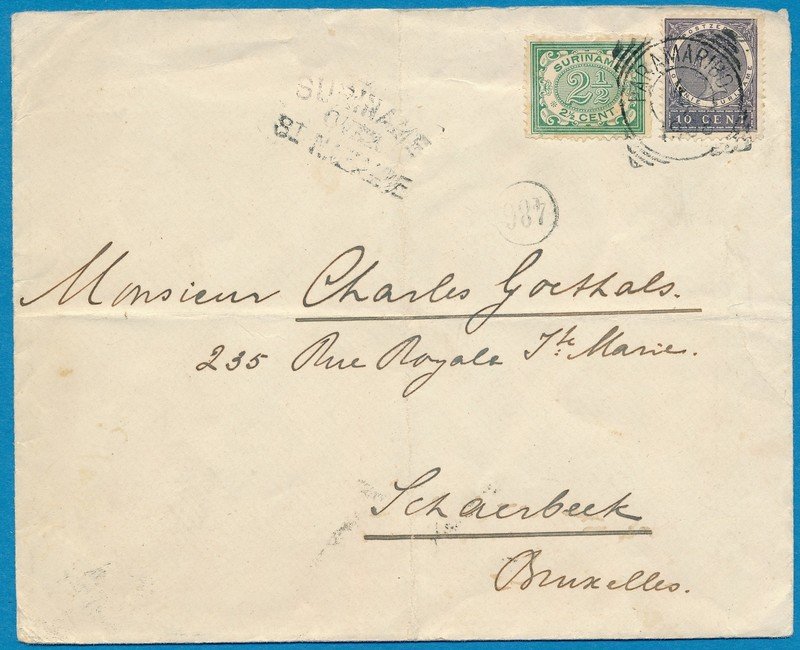 SURINAME
2½
2½ CENT
PARAMARIBO
10 CENT
SURINAME
OVER
ST NAZAIRE
984
Monsieur Charles Goethals.
235 Rue Royale Ste Marie.
Schaerbeek
Bruxelles.